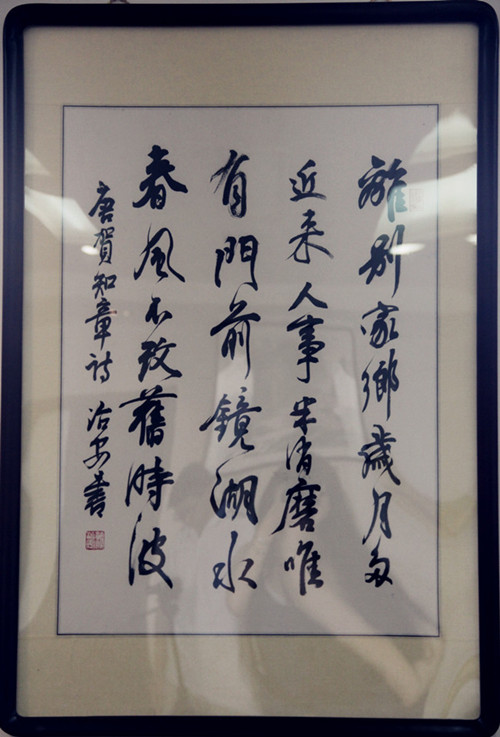 離別家鄉歲月多
近來人事半消磨唯
有門前鏡湖水
春風不改舊時波
唐賀知章詩 冶安書